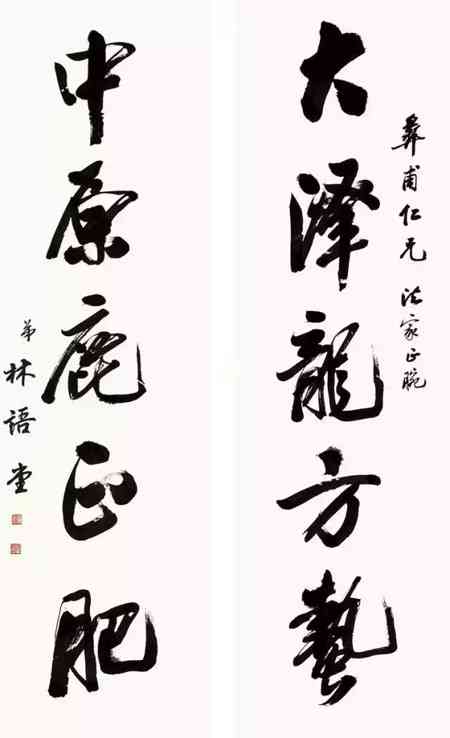 彝甫仁兄 法家正腕
大澤龍方蟄
中原鹿正肥
弟林語堂